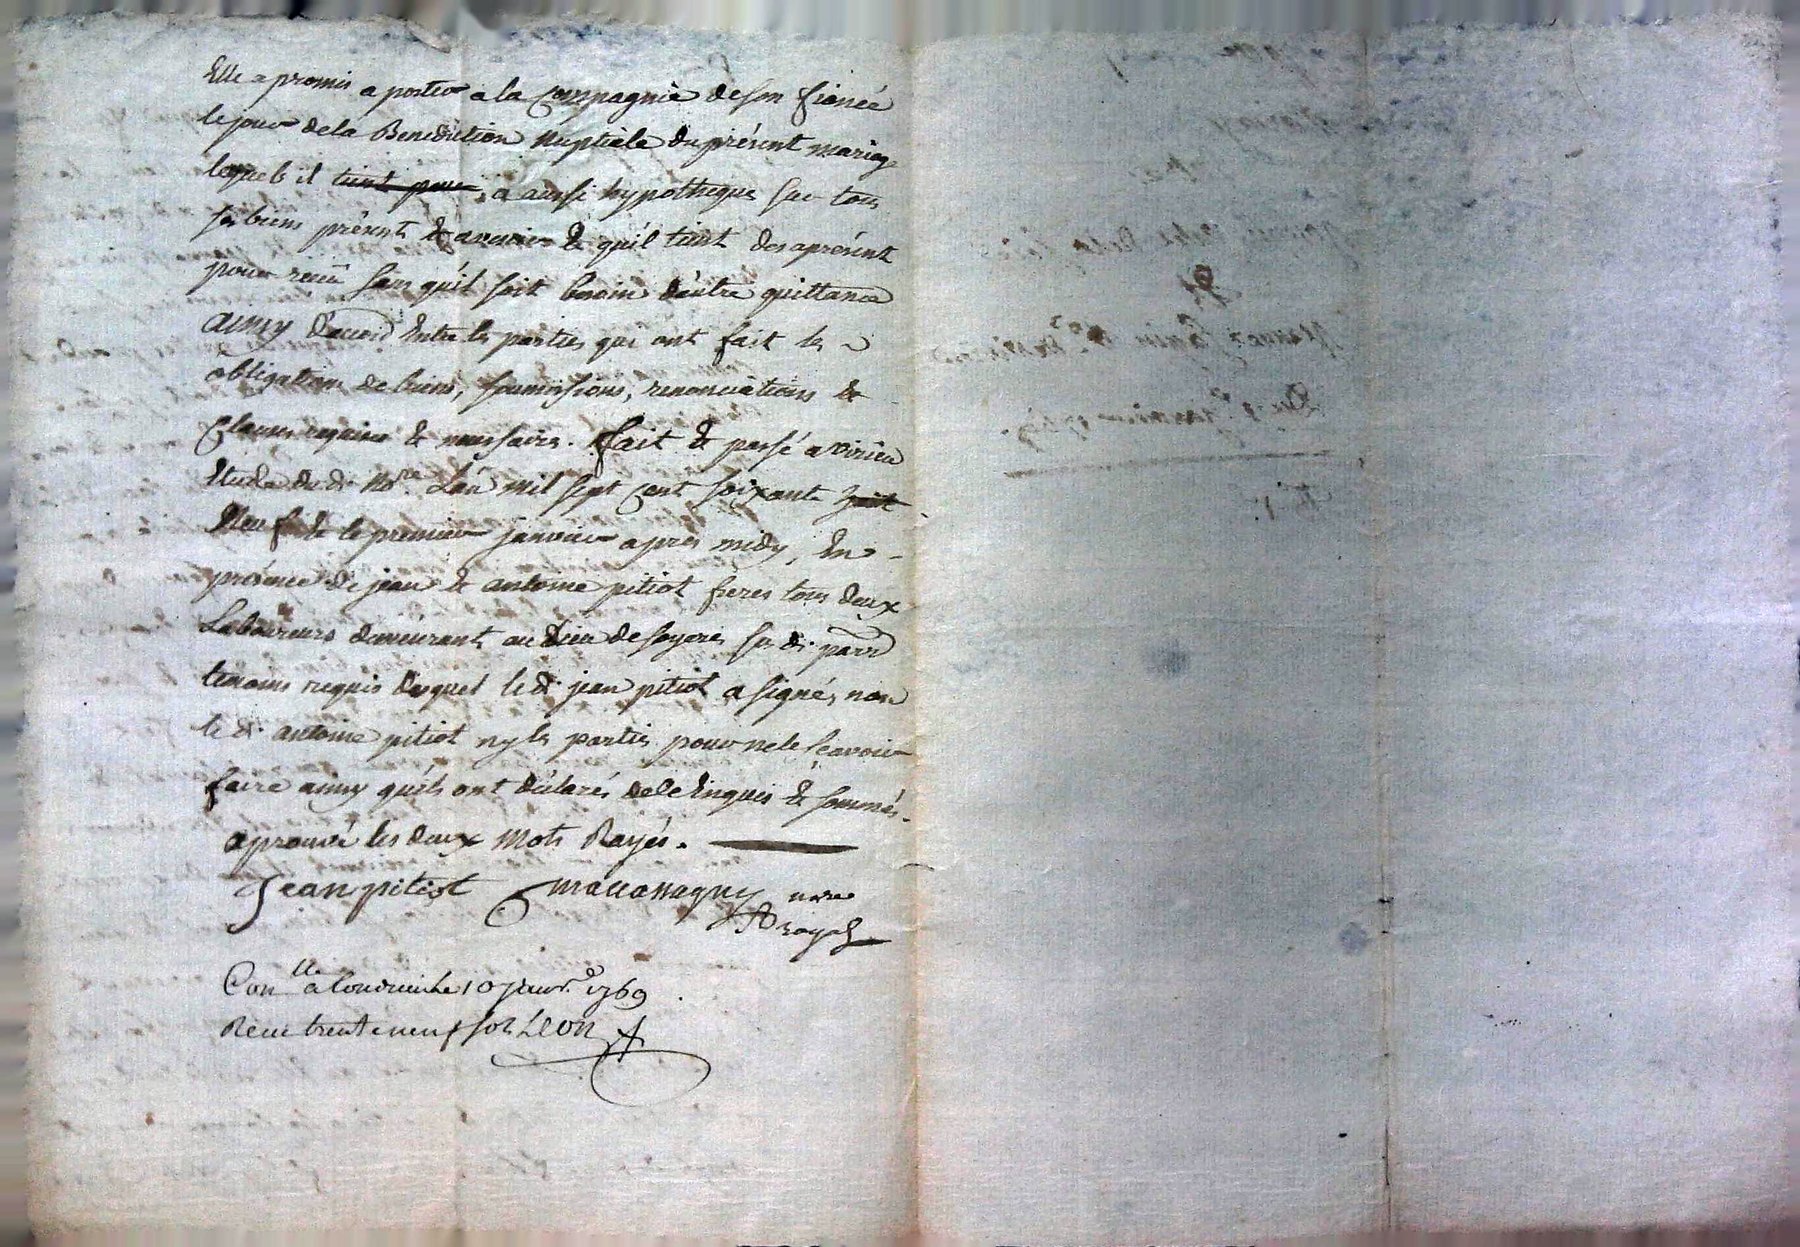 Elle a promis a porter a la Compagnie de son fiancé
le jour de la Benediction Nuptiale du présent mariage
lequel il tient pour a aussi hypotheque sur tous
ses biens présent & avenir & quil tient des aprésent
pour receu sans qu'il soit besoin d'autre quittance
ainsy d'accord Entre les parties qui ont fait les
obligations de biens, soumissions, renonciations &
Clauses requises & necessaires. fait & passé a virieu
Etude du d. No.re L'an mil sept cent soixante huit
Neuf & le premier janvier apres midy, En
présence de jean & antoine pitiot freres tous deux
Laboureurs demeurant au lieu de soyeres su. d. parr
temoins requis desquel le d. jean pitiot a signé, non
le d. antoine pitiot ny les parties pour ne le sçavoir
faire ainsy qu'ils ont déclarés de ce Enquis & sommés.
aprouvé les deux Mots Rayés.
Jean pitiot no.re
royal
Con.lle a Condrieu le 10 janv. 1769
Receu trente neuf sols Léon